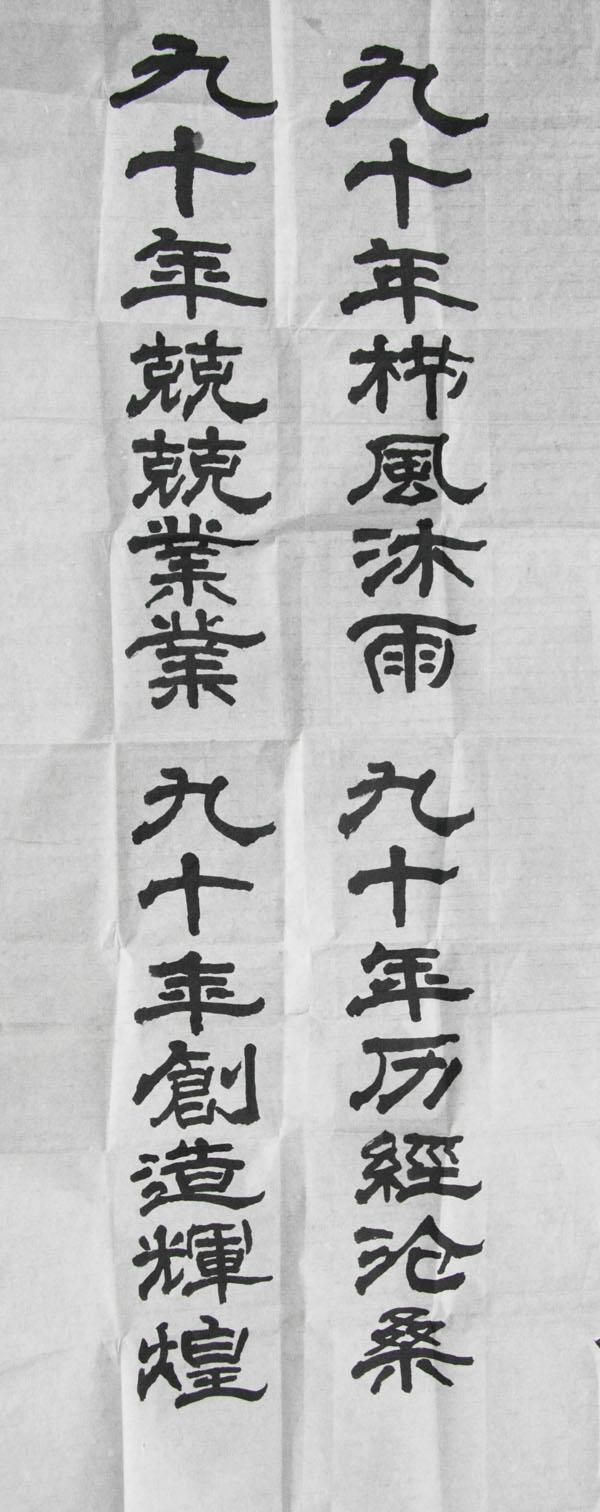 九十年栉風沐雨 九十年历經沧桑
九十年兢兢業業 九十年創造輝煌